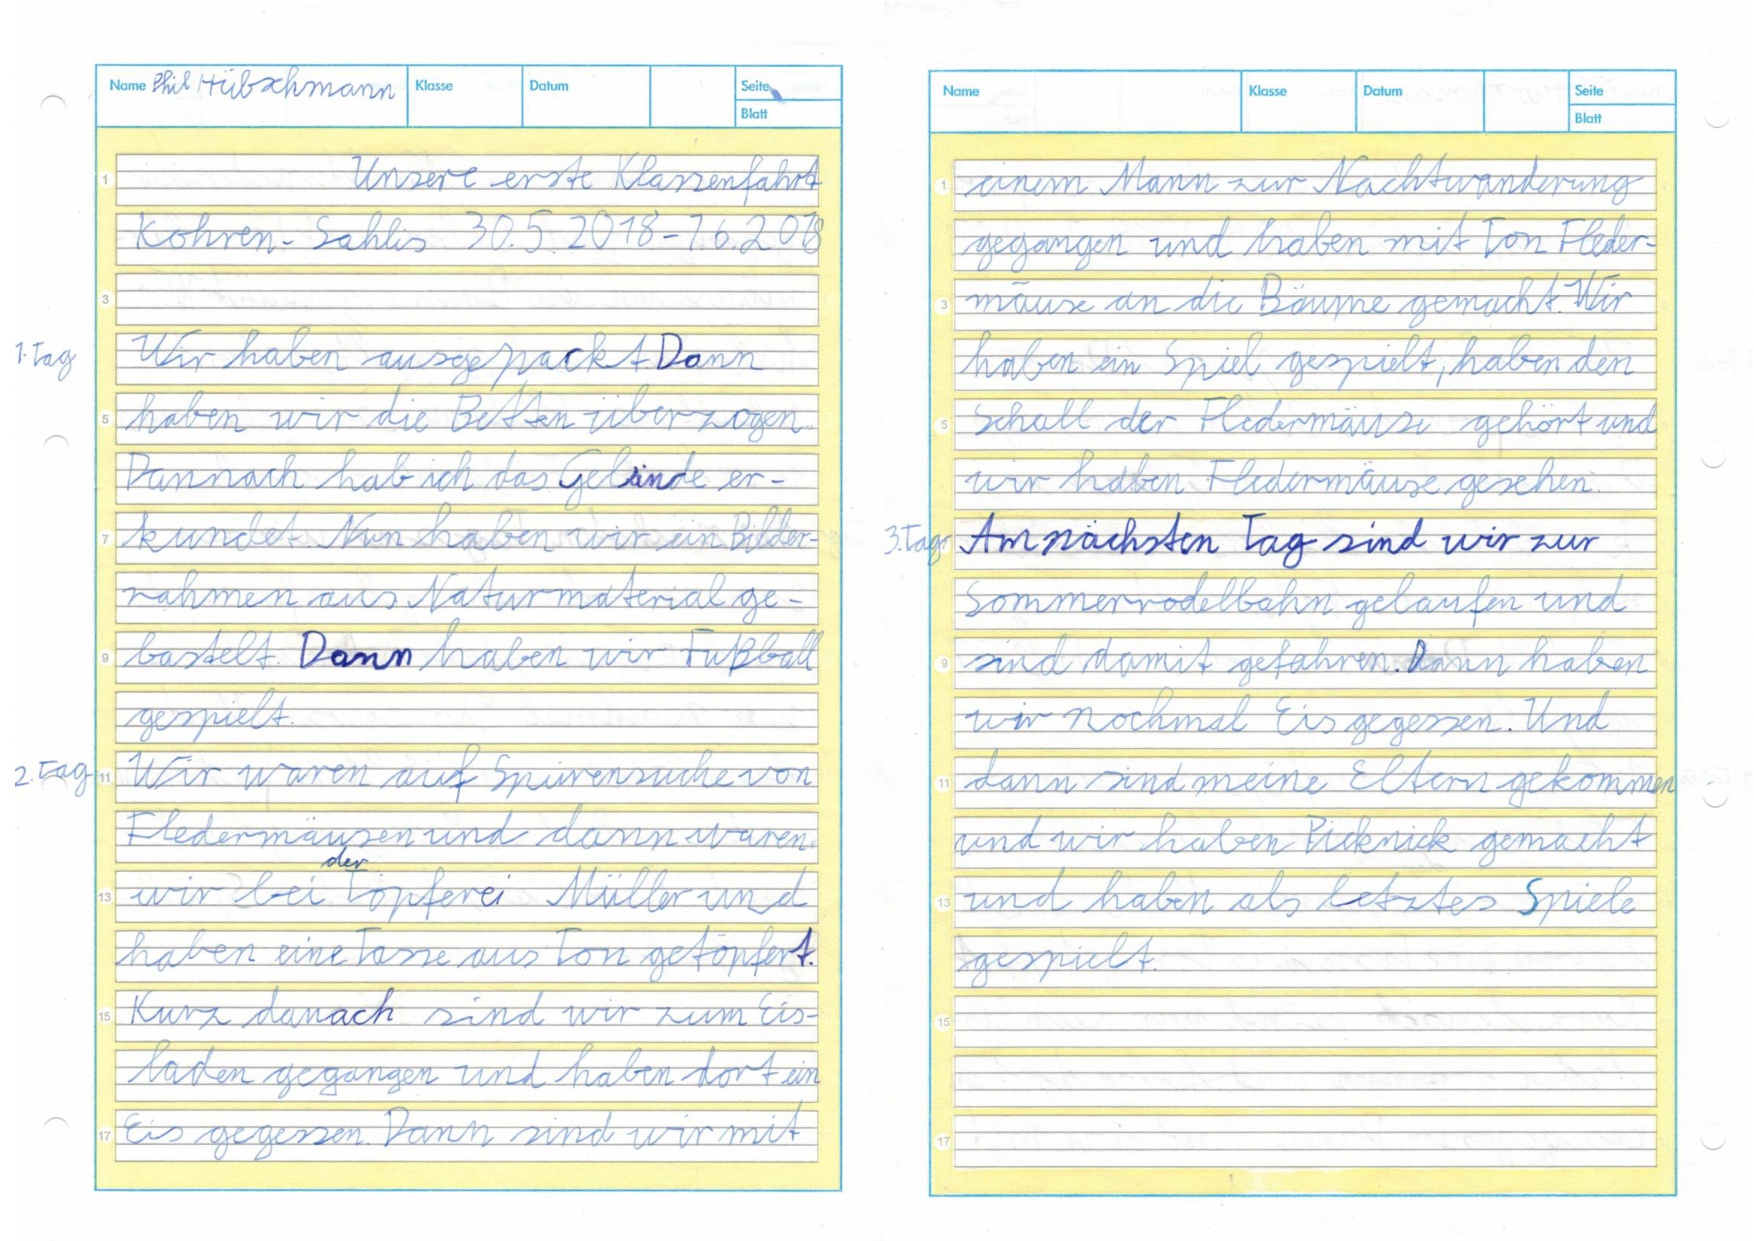 Name Phil Hübschmann Klasse Datum Seite
Blatt
1 Unsere erste Klassenfahrt
Kohren-Sahlis 30.5.2018-1.6.2018
3
1. Tag Wir haben ausgepackt Dann
5 haben wir die Betten überzogen.
Dannach hab ich das Gelände er-
7 kundet. Nun haben wir ein Bilder-
rahmen aus Naturmaterial ge-
9 bastelt. Dann haben wir Fußball
gespielt.
2. Tag 11 Wir waren auf Spurensuche von
Fledermäusen und dann waren
der
13 wir bei Töpferei Müller und
haben eine Tasse aus Ton getöpfert.
15 Kurz danach sind wir zum Eis-
laden gegangen und haben dort ein
17 Eis gegessen. Dann sind wir mit
Name Klasse Datum Seite
Blatt
1 einem Mann zur Nachtwanderung
gegangen und haben mit Ton Fleder-
3 mäuse an die Bäume gemacht. Wir
haben ein Spiel gespielt, haben den
5 Schall der Fledermäuse gehört und
wir haben Fledermäuse gesehen.
3. Tag Am nächsten Tag sind wir zur
Sommerrodelbahn gelaufen und
9 sind damit gefahren. Dann haben
wir nochmal Eis gegessen. Und
11 dann sind meine Eltern gekommen
und wir haben Picknick gemacht
13 und haben als letztes Spiele
gespielt.
15
17